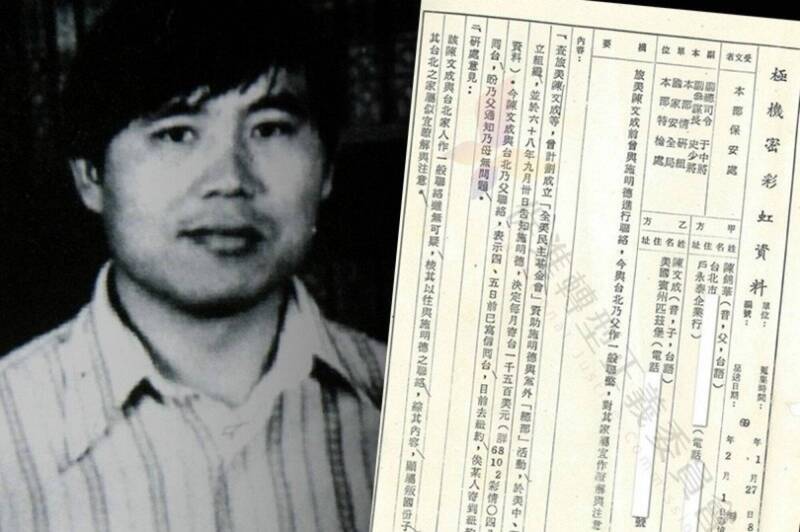 極機密彩虹資料
單位：
編號：
蒐集時間：69年1月27日8
呈送日期：年2月1日
受文者
本部保安處
副本單位
副總司令 于中將
副參謀長 史少將
本部情研組
國家安全局
本部特檢處
甲方
姓名
陳錦華（音，父，台語）
住址
台北市
戶永泰企業行
（電話
乙方
姓名
陳文成（音，子，台語）
住址
美國賓州匹茲堡（電話
號
摘要
旅美陳文成前曾與施明德進行聯絡，今與台北乃父作一般聯繫，對其家屬宜作瞭解與注意
內容：
一、查旅美陳文成等，曾計劃成立「全美民主基金會」資助施明德與黨外「總部」活動，於美中、
立組織，並於六十八年九月卅日告知施明德，決定每月寄台一千五百美元（詳6802彩情〇四
資料）。今陳文成與台北乃父聯絡，表示四、五日前已寫信回台，目前去紐約，俟某人寄到紐約
回台，盼乃父通知乃母無問題。
二、研處意見：
該陳文成與台北家人作一般聯絡雖無可疑，核其以往與施明德之聯絡，綜其內容，顯屬叛國份子
其台北之家屬似宜瞭解與注意。
促進轉型正義委員會